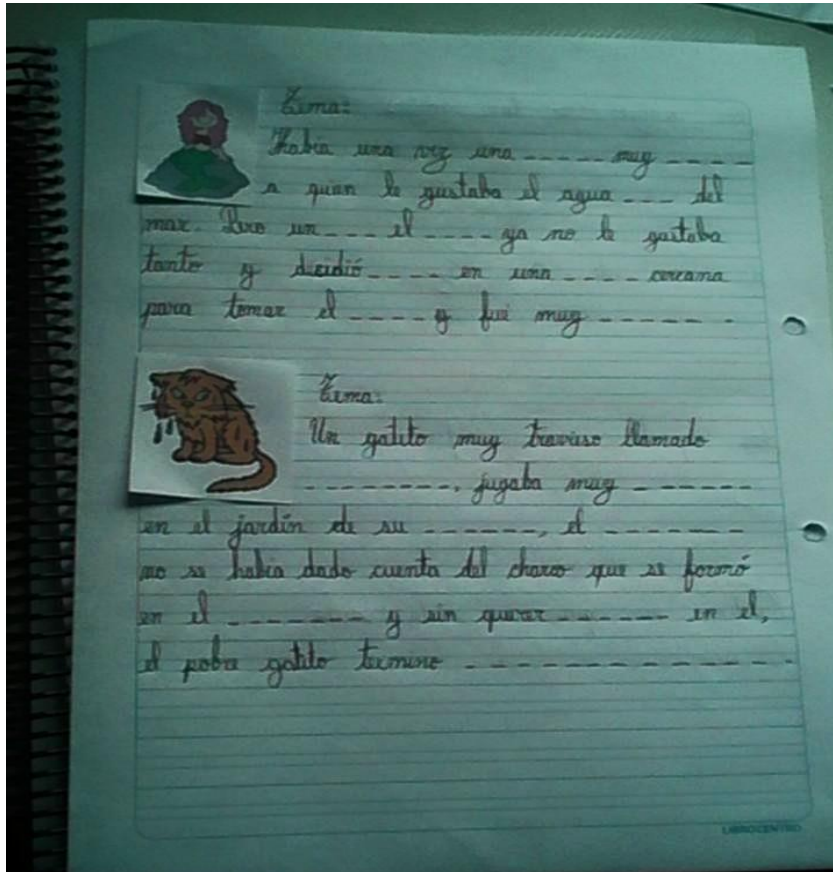 Tema:
Había una vez una _ _ _ _ _ muy _ _ _ _
a quien le gustaba el agua _ _ _ del
mar. Pero un _ _ _ el _ _ _ _ ya no le gustaba
tanto y decidió _ _ _ _ en una _ _ _ _ cercana
para tomar el _ _ _ _ y fué muy _ _ _ _ _ _
Tema:
Un gatito muy travieso llamado
_ _ _ _ _ _ _ _ _, jugaba muy _ _ _ _ _ _
en el jardín de su _ _ _ _ _ _, el _ _ _ _ _ _ _
no se habia dado cuenta del charco que se formó
en el _ _ _ _ _ _ _ _ y sin querer _ _ _ _ _ _ en el,
el pobre gatito termino _ _ _ _ _ _ _ _ _ _ _ _ _ _
LIBROCENTRO